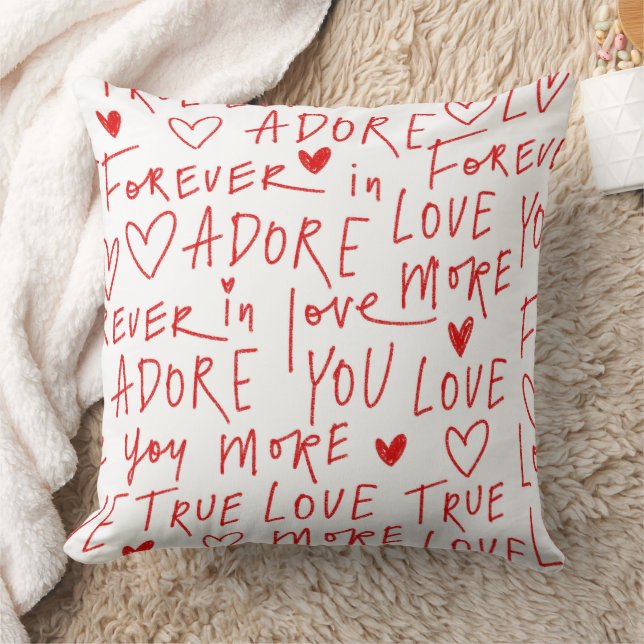 TRUE
ADORE
FOREVER in FOREVE
ADORE LOVE YO
REVER in love MORE
ADORE YOU LOVE
you MORE
E TRUE LOVE TRUE
E MORE LOVE L